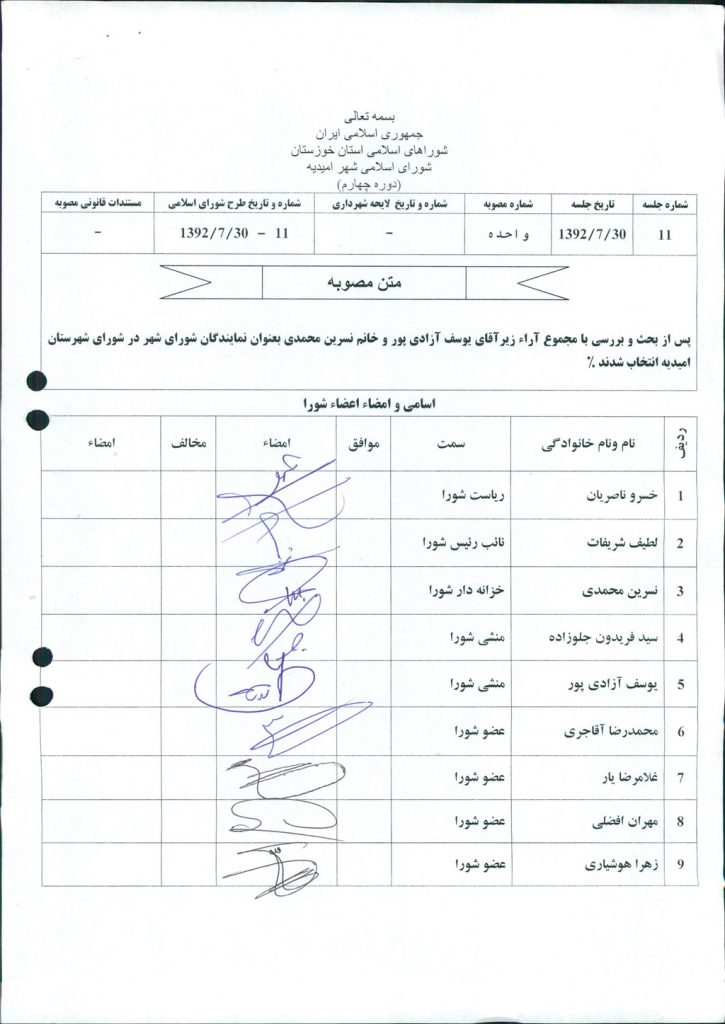 بسمه تعالی
جمهوری اسلامی ایران
شوراهای اسلامی استان خوزستان
شورای اسلامی شهر امیدیه
(دوره چهارم)
شماره جلسه تاریخ جلسه شماره مصوبه شماره و تاریخ لایحه شهرداری شماره و تاریخ طرح شورای اسلامی مستندات قانونی مصوبه
11 1392/7/30 واحده - 11 – 1392/7/30 -
متن مصوبه
پس از بحث و بررسی با مجموع آراء زیرآقای یوسف آزادی پور و خانم نسرین محمدی بعنوان نمایندگان شورای شهر در شورای شهرستان
امیدیه انتخاب شدند ٪
اسامی و امضاء اعضاء شورا
ردیف نام ونام خانوادگی سمت موافق امضاء مخالف امضاء
1 خسرو ناصریان ریاست شورا
2 لطیف شریفات نائب رئیس شورا
3 نسرین محمدی خزانه دار شورا
4 سید فریدون جلوزاده منشی شورا
5 یوسف آزادی پور منشی شورا
6 محمدرضا آقاجری عضو شورا
7 غلامرضا یار عضو شورا
8 مهران افضلی عضو شورا
9 زهرا هوشیاری عضو شورا